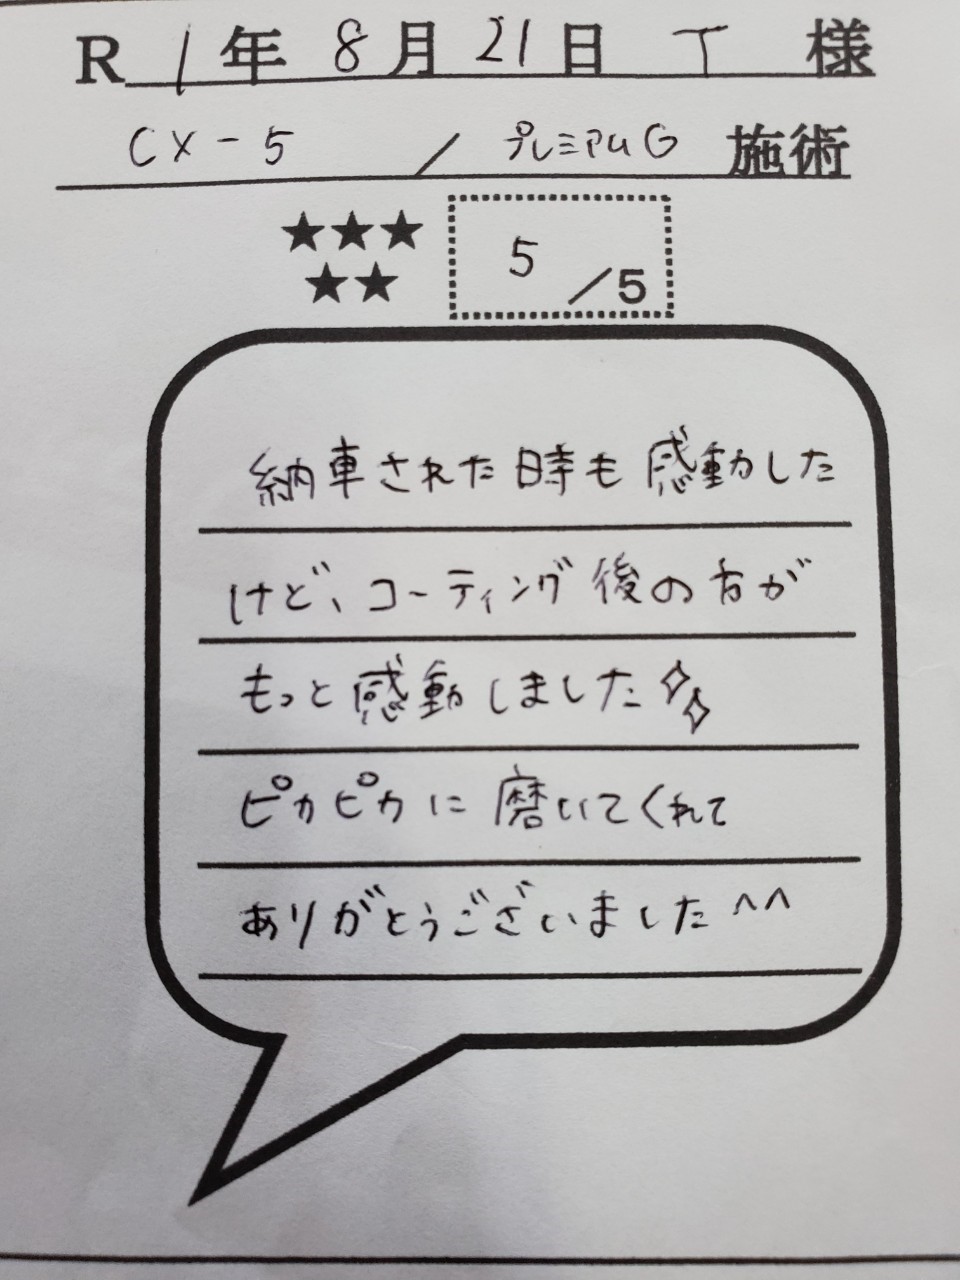 R 1年 8月 21日 T 様
CX-5 / プレミアムG 施術
★★★
★★
5/5
納車された時も感動した
けど、コーティング後の方が
もっと感動しました✧✧
ピカピカに磨いてくれて
ありがとうございました^^